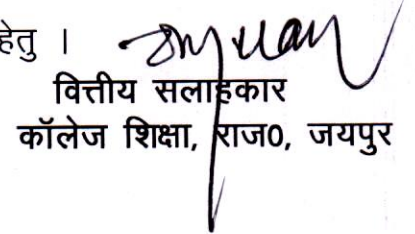 हेतु ।
वित्तीय सलाहकार
कॉलेज शिक्षा, राज0, जयपुर